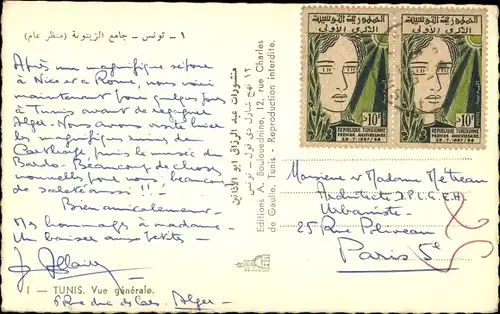 ١ - تونس - جامع الزيتونة (منظر عام)
Après une magnifique
à Nice et à Rome, nous voici
maintenant pour quelques jours
à Tunis avant de rejoindre
Alger. Nous avons visité hier
les magnifiques ruines de
Carthage puis le musée du
Bardo. Beaucoup de choses
nouvelles pour nous, beaucoup
de saletés aussi !!!
Bien amicalement.
Mes hommages à madame.
Un baiser aux petits -
1 - TUNIS. Vue générale.
6 Rue Alger -
منشورات عبد الرزاق
١٢ نهج شارل دي قول - تونس
Editions A. Bouloeudnine, 12, rue Charles
de Gaulle, Tunis - Reproduction interdite.
الجمهورية التونسية
الذكرى الأولى
10F
REPUBLIQUE TUNISIENNE
PREMIER ANNIVERSAIRE
25-7-1957/58
الجمهورية التونسية
الذكرى الأولى
10F
REPUBLIQUE TUNISIENNE
PREMIER ANNIVERSAIRE
25-7-1957/58
Monsieur et Madame Métreau
Architecte D.P.L.G. E.H
Urbaniste -
25 Rue
Paris 5e